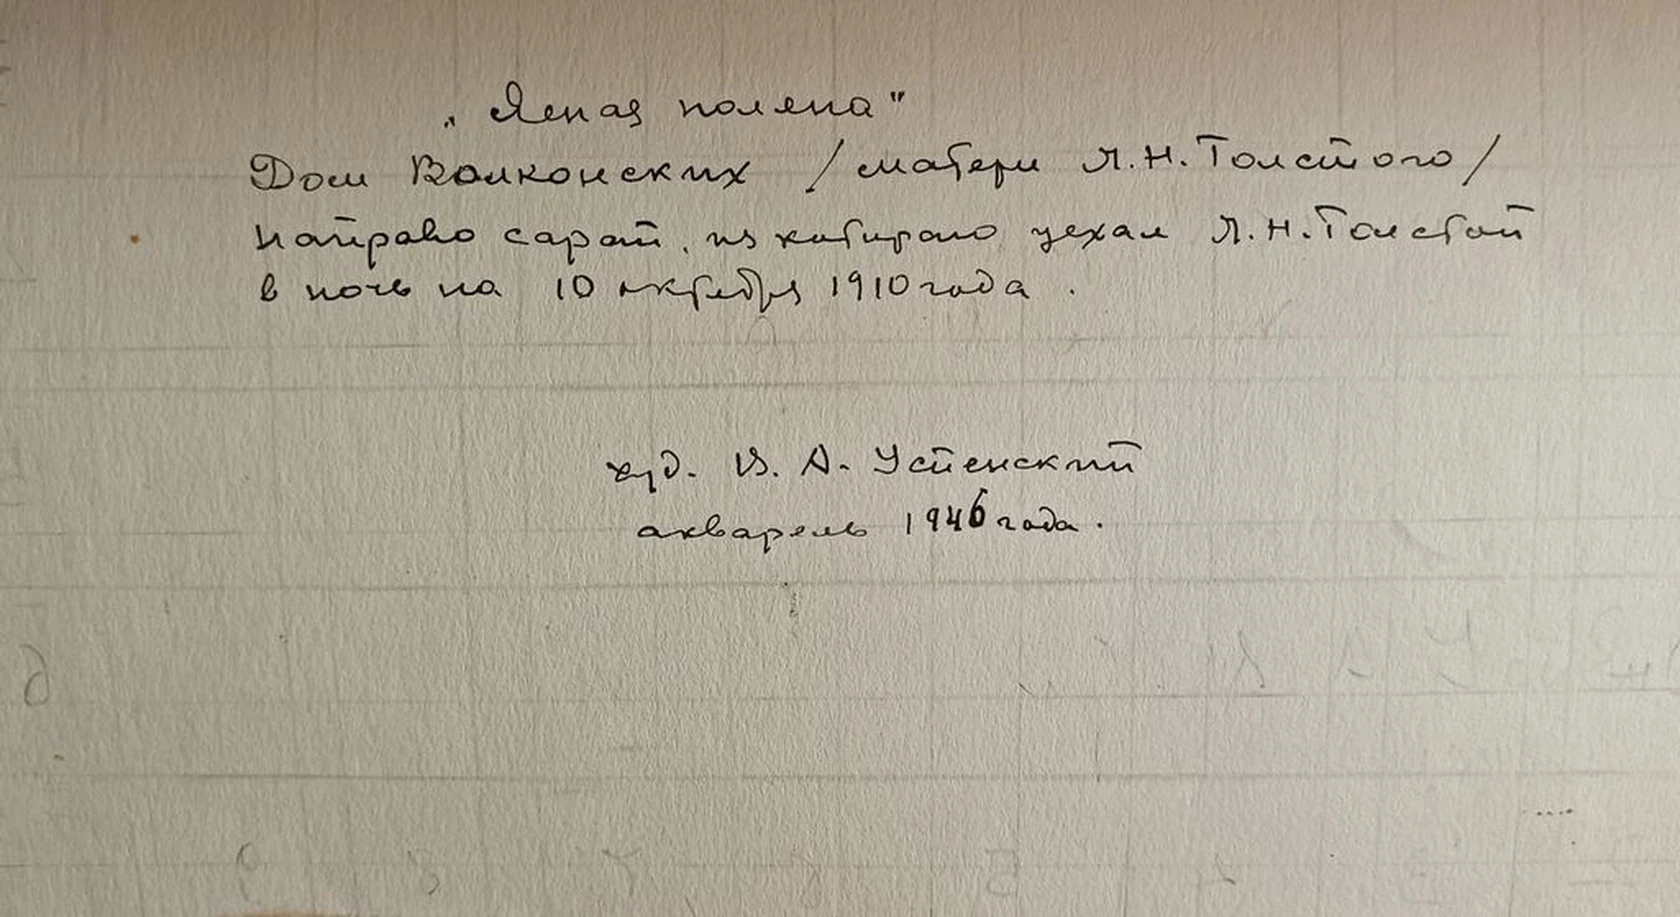 „Ясная поляна"
Дом Волконских /матери Л.Н.Толстого/
Направо сарай, из которого уехал Л.Н.Толстой
в ночь на 10 октября 1910 года.
худ. В. А. Успенский
акварель 1946 года.
6